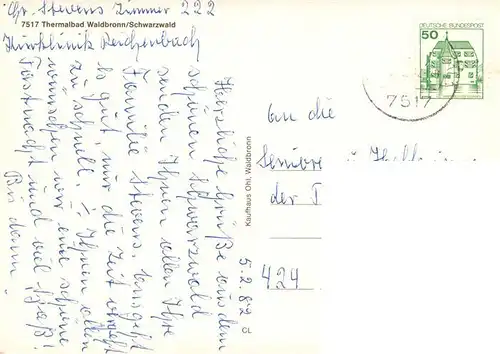 Chr. Stevens Zimmer 222
7517 Thermalbad Waldbronn/Schwarzwald
Kurklinik Reichenbach
Herzliche Grüße aus dem
schönen Schwarzwald
senden Ihnen allen Ihre
Familie Stevens. Uns geht
es gut, nur die Zeit vergeht
zu schnell. Ihnen allen
wünschen wir eine schöne
Fastnacht und viel Spaß!
Bis dann!
5.2.82
Kaufhaus Ohl, Waldbronn
CL
DEUTSCHE BUNDESPOST
50
7517
An die
Seniore
der
424